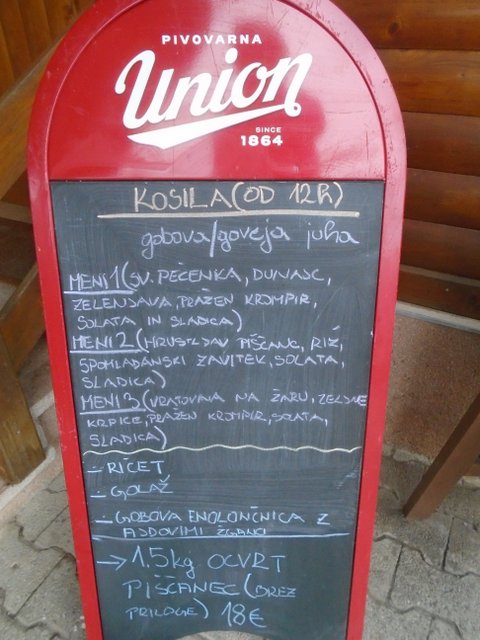 PIVOVARNA
Union
SINCE
1864
KOSILA (OD 12h)
gobova/goveja juha
MENI 1 (SV. PEČENKA, DUNAJC,
ZELENJAVA, PRAŽEN KROMPIR,
SOLATA IN SLADICA)
MENI 2 (HRUSTLJAV PIŠČANC, RIŽ,
SPOMLADANSKI ZAVITEK, SOLATA,
SLADICA)
MENI 3 (VRATOVINA NA ŽARU, ZELJNE
KRPICE, PRAŽEN KROMPIR, SOLATA,
SLADICA)
- RIČET
- GOLAŽ
- GOBOVA ENOLONČNICA Z
AJDOVIMI ŽGANCI
→ 1.5kg OCVRT
PIŠČANEC (BREZ
PRILOGE) 18€